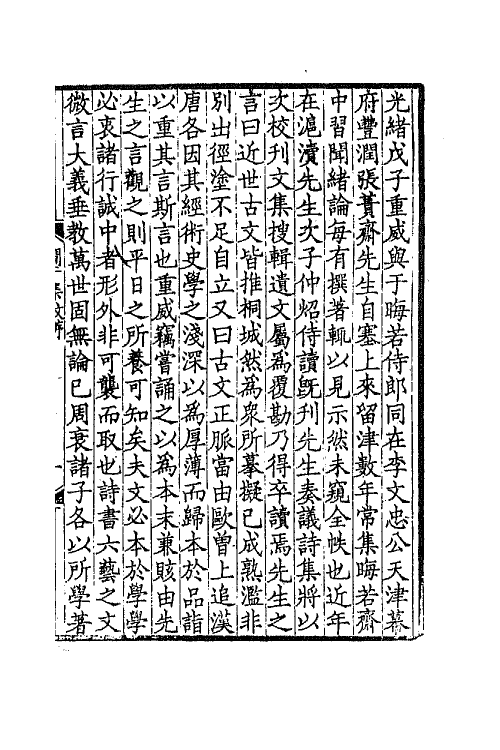 光緒戊子重威與于晦若侍郎同在李文忠公天津幕
府豐潤張蕢齋先生自塞上來留津數年常集晦若齋
中習聞緒論每有撰著輒以見示然未窺全帙也近年
在滬瀆先生次子仲炤侍讀旣刊先生奏議詩集將以
次校刊文集搜輯遺文屬為覆勘乃得卒讀焉先生之
言曰近世古文皆推桐城然為衆所摹擬已成熟濫非
別出徑塗不足自立又曰古文正脈當由歐曾上追漢
唐各因其經術史學之淺深以為厚薄而歸本於品詣
以重其言斯言也重威竊嘗誦之以為本末兼賅由先
生之言觀之則平日之所養可知矣夫文必本於學學
必衷諸行誠中者形外非可襲而取也詩書六藝之文
微言大義垂教萬世固無論已周衰諸子各以所學著